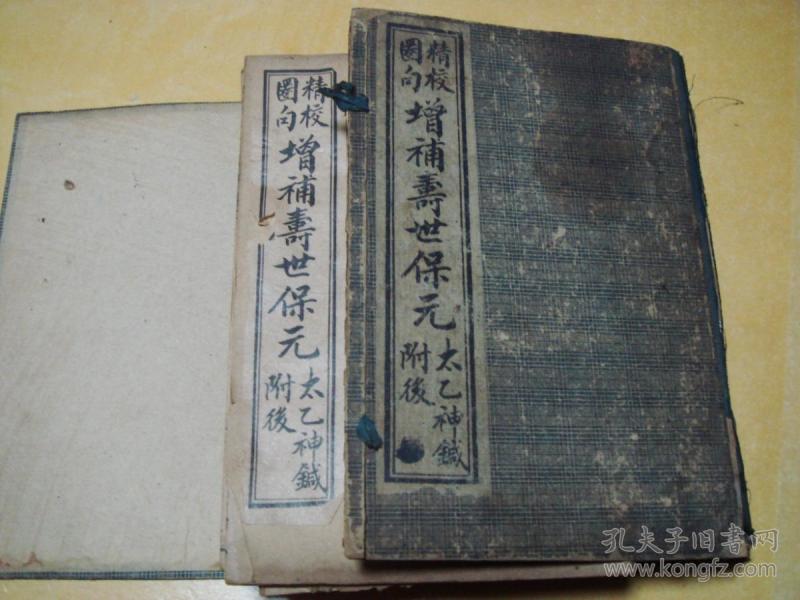 精校
圈句
增補壽世保元
太乙神鍼
附後
精校
圈句
增補壽世保元
太乙神鍼
附後
孔夫子旧书网
www.kongfz.com